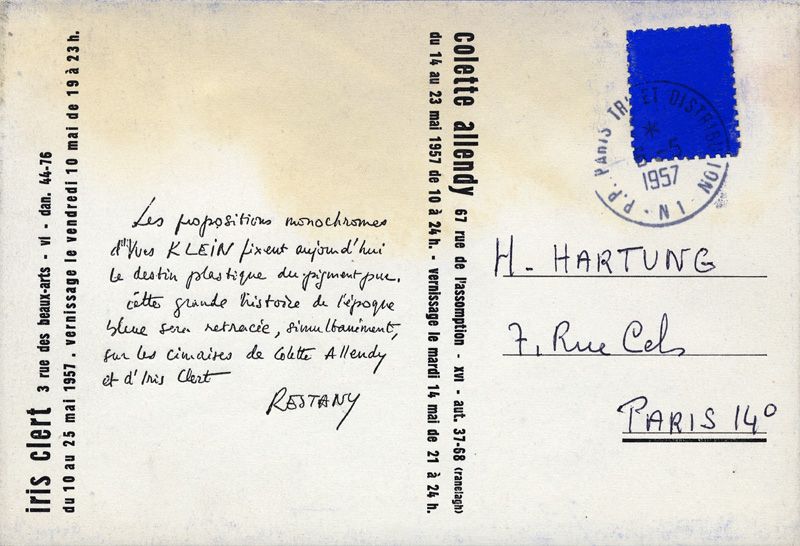 iris clert 3 rue des beaux-arts - vi - dan. 44-76
du 10 au 25 mai 1957 . vernissage le vendredi 10 mai de 19 à 23 h.
Les propositions monochromes
d'Yves KLEIN fixent aujourd'hui
le destin plastique du pigment pur.
cette grande histoire de l'époque
bleue sera retracée, simultanément,
sur les cimaises de Colette Allendy
et d'Iris Clert
RESTANY
colette allendy 67 rue de l'assomption - xvi - aut. 37-68 (ranelagh)
du 14 au 23 mai 1957 de 10 à 24 h. - vernissage le mardi 14 mai de 21 à 24 h.
P.P. PARIS TRI ET DISTRIBUTION N 1
-5
1957
H. HARTUNG
7, Rue Cels
PARIS 14°